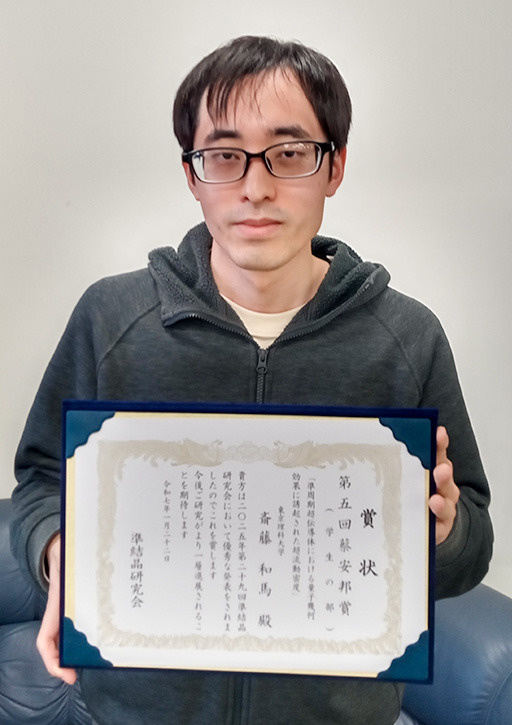 賞状
第五回蔡安邦賞
(学生の部)
「準周期超伝導体における量子幾何
効果に誘起された超流動密度」
東京理科大学
斎藤 和馬 殿
貴方は二〇二五年第二十九回準結晶
研究会において優秀な発表をされま
したのでこれを賞します
今後ご研究がより一層進展されるこ
とを期待します
令和七年一月二十二日
準結晶研究会